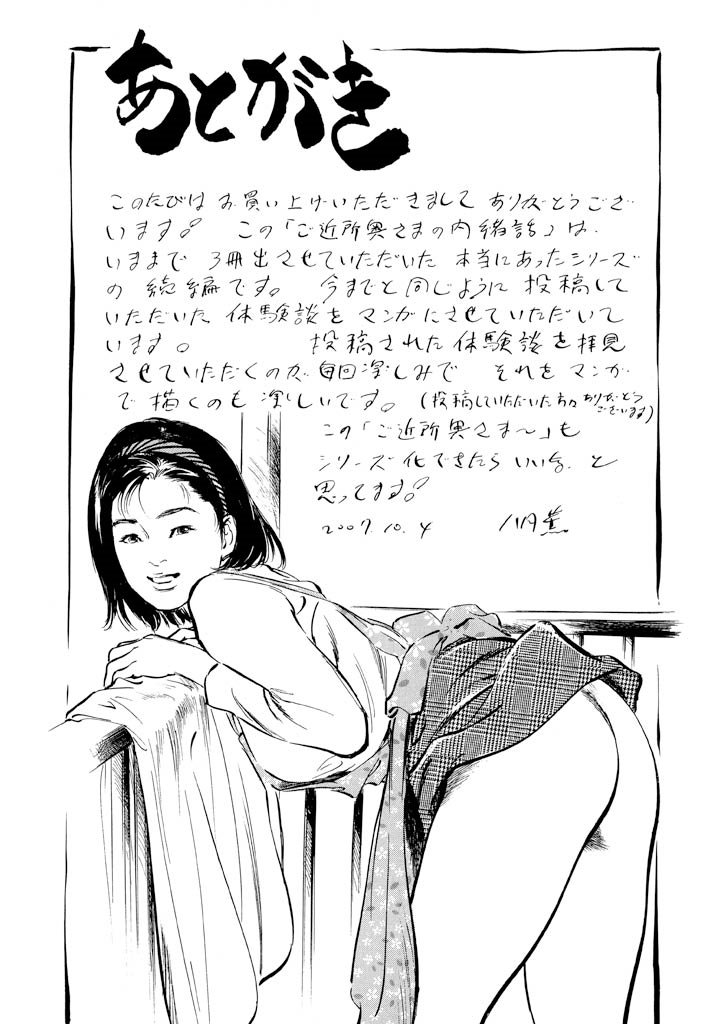 あとがき
このたびは お買い上げいただきまして ありがとうござ
います。 この「ご近所奥さまの内緒話」は、
いままで 3冊出させていただいた 本当にあったシリーズ
の 続編です。 今までと同じように 投稿して
いただいた 体験談を マンガにさせていただいて
います。 投稿された 体験談を 拝見
させていただくのが 毎回楽しみで それを マンガ
で 描くのも 楽しいです。 (投稿していただいた方々 ありがとう
ございます)
この「ご近所奥さま〜」も
シリーズ化できたら いいな、と
思ってます。
2007.10.4